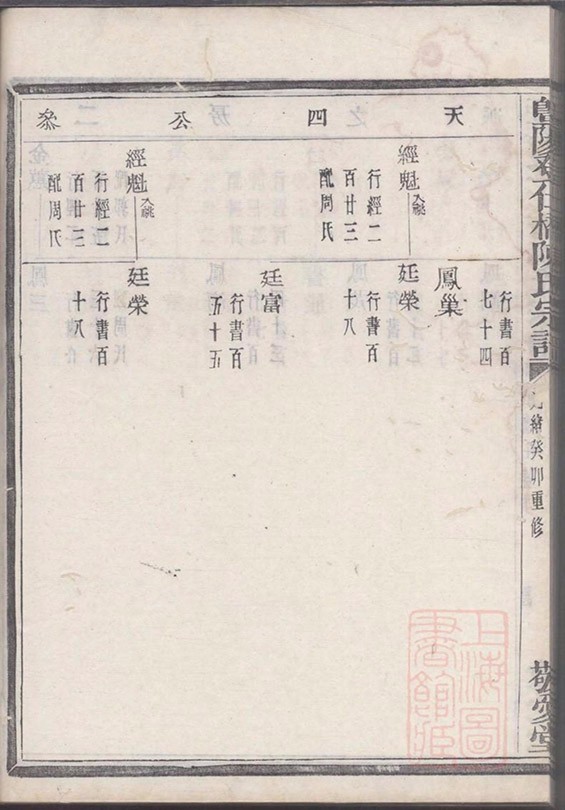 陳氏宗譜
光緒癸卯重修
敬愛堂
天四公叅
經魁
行經二
百廿三
配周氏
經魁
行經二
百廿三
配周氏
行書百
七十四
鳳巢
廷榮
行書百
十八
廷富
行書百
五十五
廷榮
行書百
十八
上海圖
書館藏